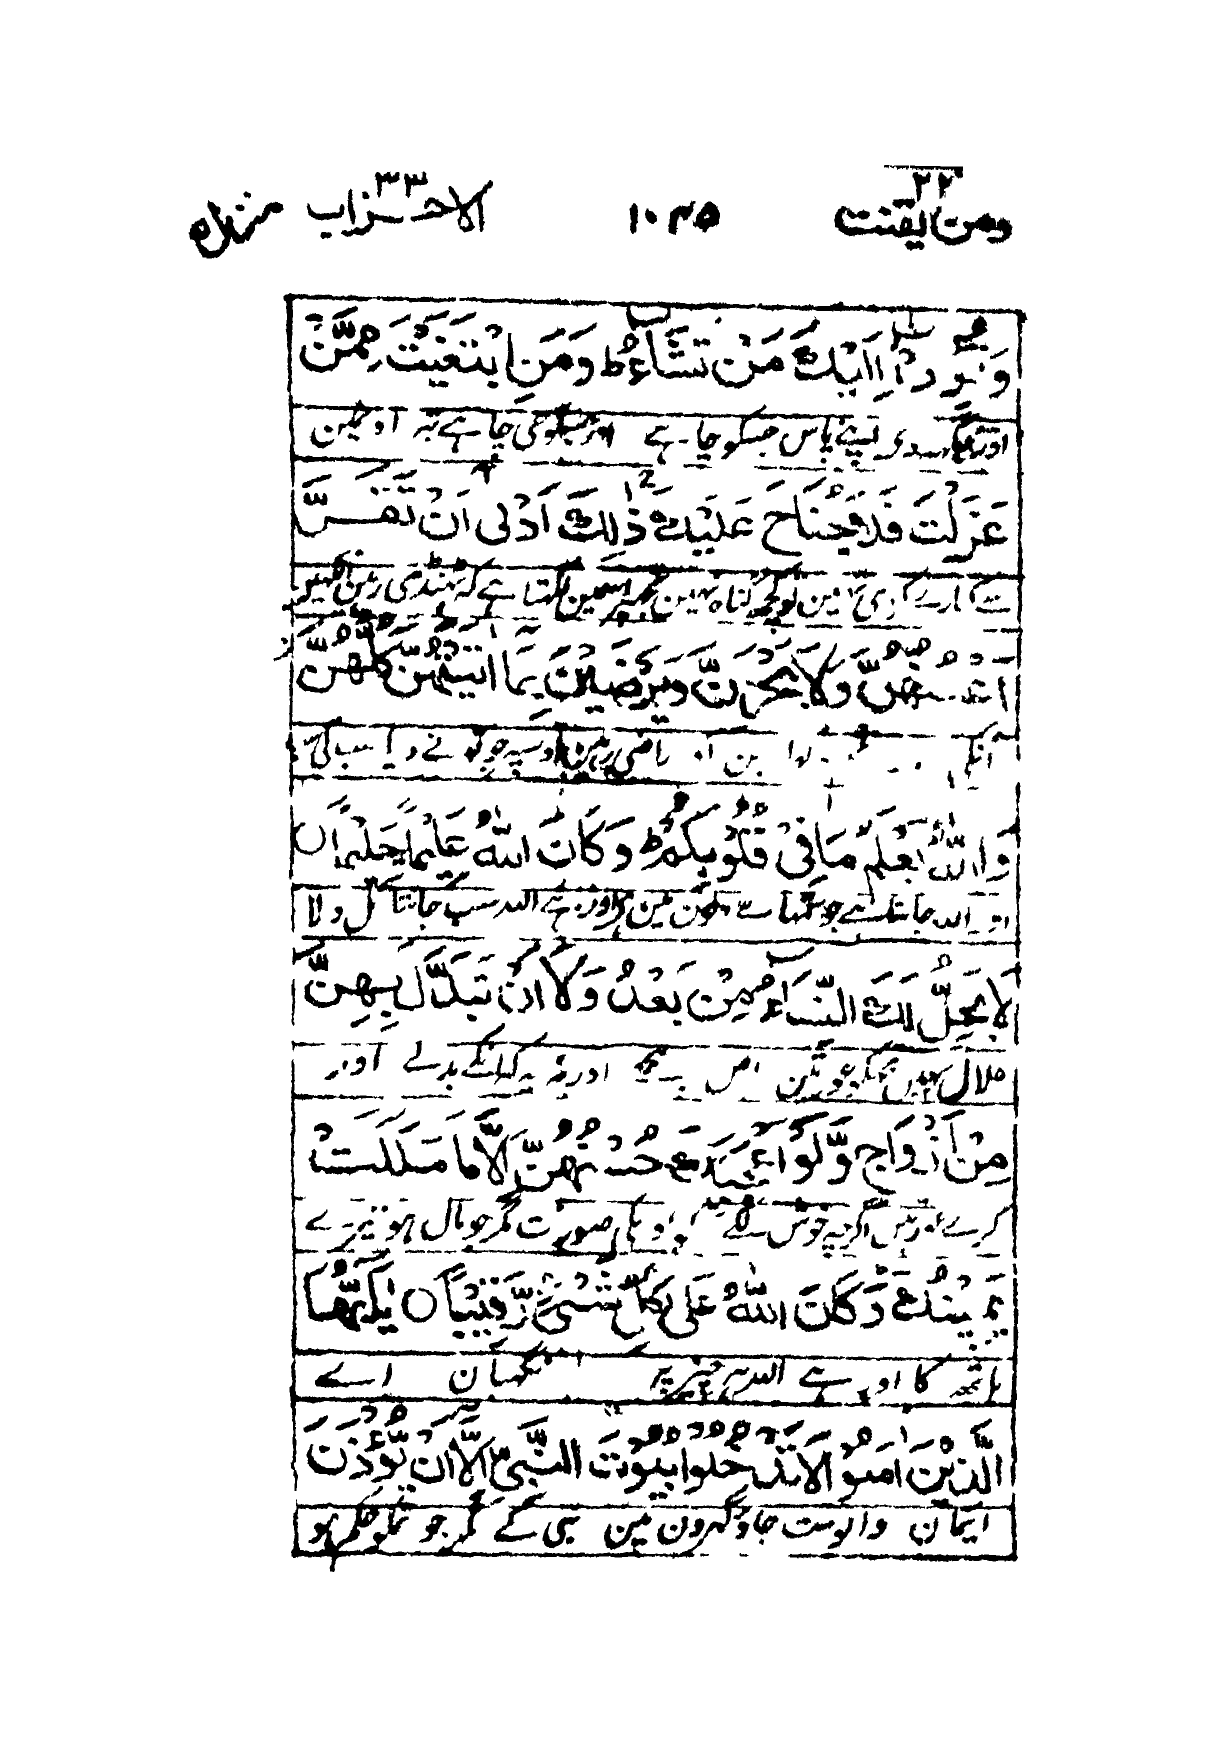 ومن یقنت ٢٢ ١٠٤٥ الاحزاب ٣٣ منزل ٥
وَتُؤْوِيْۤ اِلَيْكَ مَنْ تَشَآءُ ؕ وَمَنِ ابْتَغَيْتَ مِمَّنْ
پاس جسکو چاہے اور جسکو جی چاہے تیرا اونمین
عَزَلْتَ فَلَا جُنَاحَ عَلَيْكَ ذٰلِكَ اَدْنٰۤى اَنْ تَقَرَّ
تو کچھ گناہ نہین تجھپر اسمین لگتا ہے کہ ٹھنڈی رہین آنکھین
اَعْيُنُهُنَّ وَلَا يَحْزَنَّ وَيَرْضَيْنَ بِمَاۤ اٰتَيْتَهُنَّ كُلُّهُنَّ
انکی راضی رہین اوسپر جو تو نے دیا سب کی سب
وَاللّٰهُ يَعْلَمُ مَا فِيْ قُلُوْبِكُمْ ؕ وَكَانَ اللّٰهُ عَلِيْمًا حَلِيْمًا ○
اور اللہ جانتا ہے جو تمہارے دلون مین اور ہے اللہ سب جانتا تحمل والا
لَا يَحِلُّ لَكَ النِّسَآءُ مِنْۢ بَعْدُ وَلَاۤ اَنْ تَبَدَّلَ بِهِنَّ
حلال نہین تجھکو عورتین اس پیچھے اور نہ یہ کہ انکے بدلے اور
مِنْ اَزْوَاجٍ وَّلَوْ اَعْجَبَكَ حُسْنُهُنَّ اِلَّا مَا مَلَكَتْ
کرے عورتین اگرچہ خوش لگے اونکی صورت مگر جو مال ہو تیرے
يَمِيْنُكَ وَكَانَ اللّٰهُ عَلٰى كُلِّ شَيْءٍ رَّقِيْبًا ○ يٰۤاَيُّهَا
ہاتھ کا اور ہے اللہ ہر چیز پر نگہبان اے
الَّذِيْنَ اٰمَنُوْا لَا تَدْخُلُوْا بُيُوْتَ النَّبِيِّ اِلَّاۤ اَنْ يُّؤْذَنَ
ایمان والو مت جاؤ گھرون مین نبی کے مگر جو تمکو حکم ہو